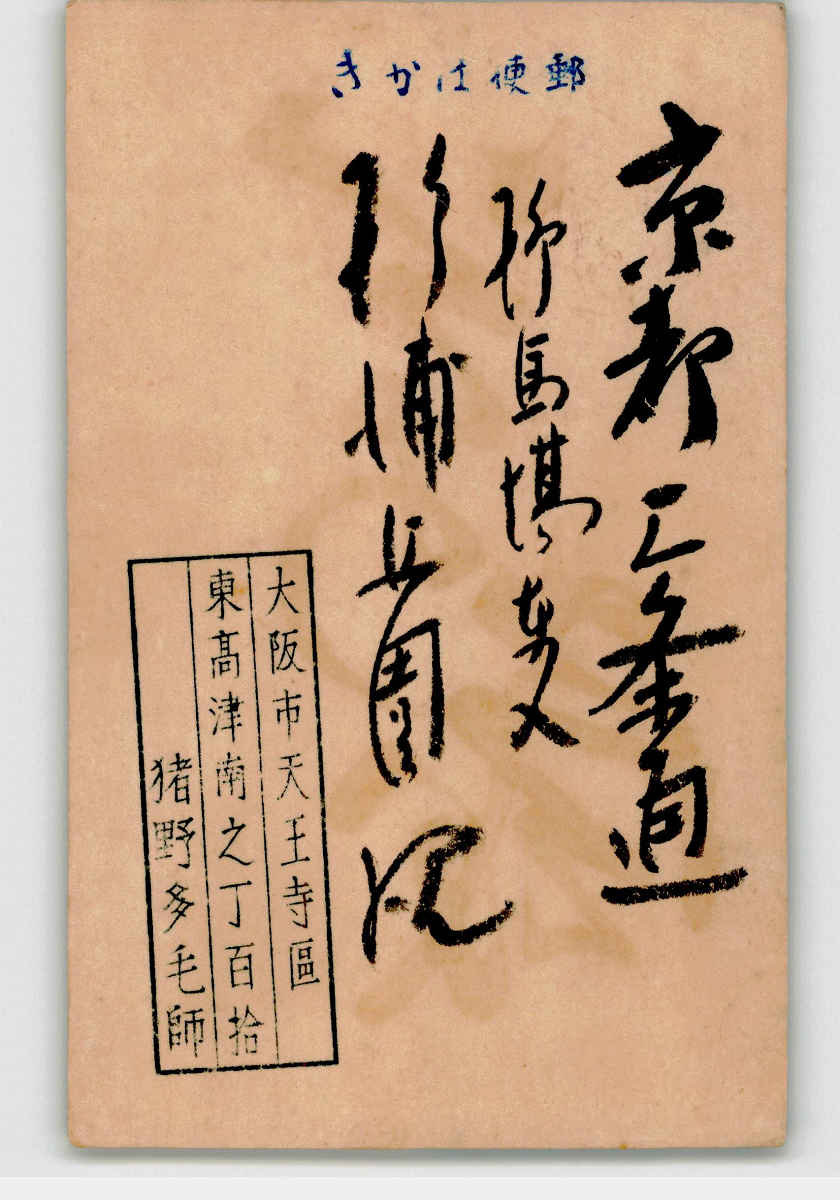 郵便はかき
京都三条通
柳馬場東入
杉浦丘園
大阪市天王寺區
東髙津南之丁百拾
猪野多毛師